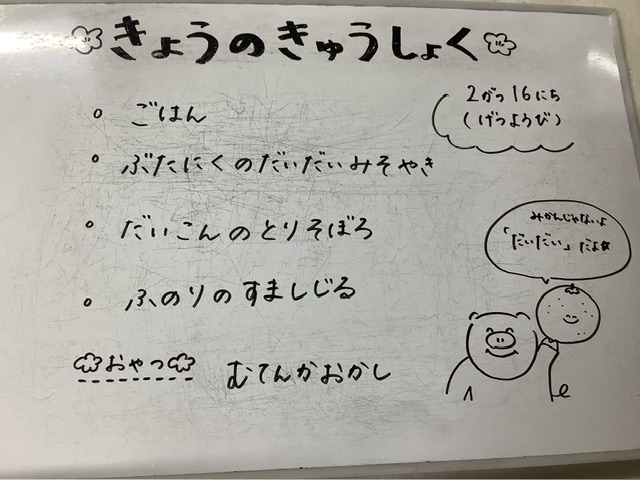 きょうのきゅうしょく
2がつ16にち
(げつようび)
。ごはん
。ぶたにくのだいだいみそやき
。だいこんのとりそぼろ
。ふのりのすましじる
おやつ
むてんかおかし
みかんじゃないよ
「だいだい」だよ☆